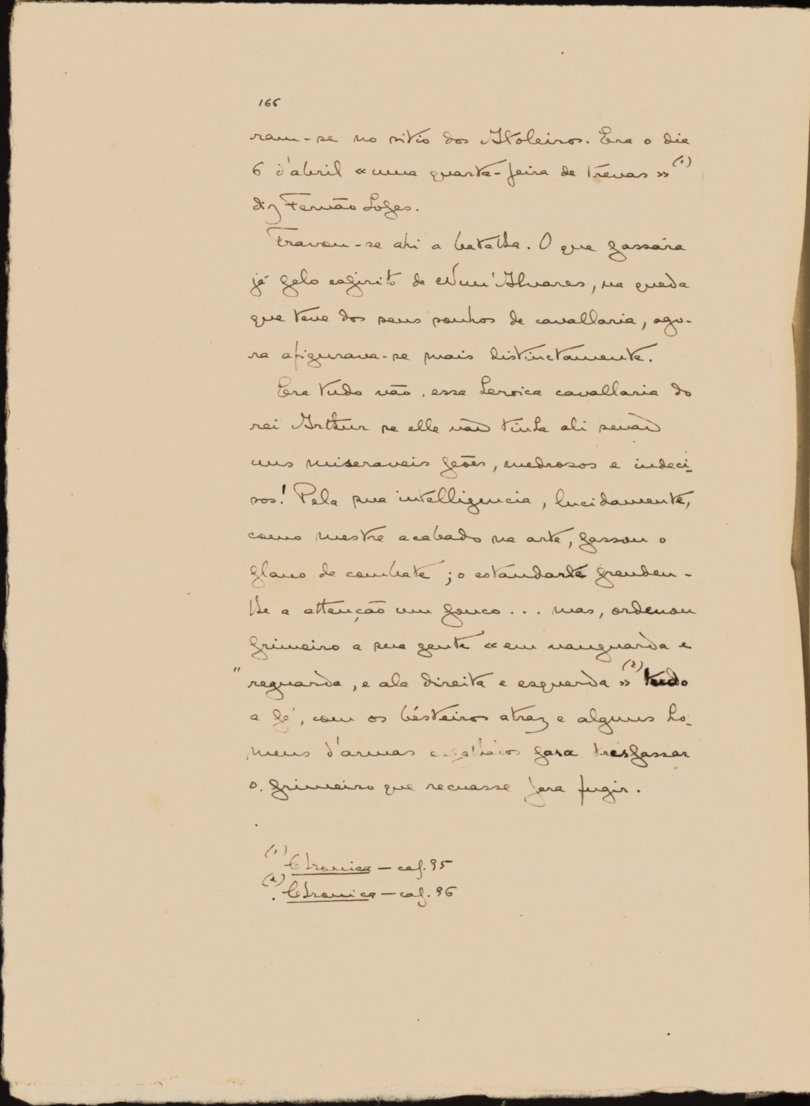 166
ram-se no sitio dos Atoleiros. Era o dia
6 d'abril «uma quarta-feira de trévas» (1)
diz Fernão Lopes.
Travou-se ahi a batalha. O que passára
já pelo espirito de Nun'Alvares, na queda
que teve dos seus sonhos de cavallaria, ago-
ra afigurava-se mais distinctamente.
Era tudo vão. essa heroica cavallaria do
rei Arthur se elle não tinha ali senão
uns miseraveis peões, medrosos e indeci-
sos! Pela sua intelligencia, lucidamente,
como mestre acabado na arte, passou o
plano de combate; o estandarte prenden-
lhe a attenção um pouco... mas, ordenou
primeiro a sua gente «em vanguarda e
" reguarda, e ala direita e esquerda» (2) tudo
a pé, com os bésteiros atraz e alguns ho-
mens d'armas espalhados para trespassar
o primeiro que recuasse para fugir.
(1) Chronica — cap. 95
(2) Chronica — cap. 96